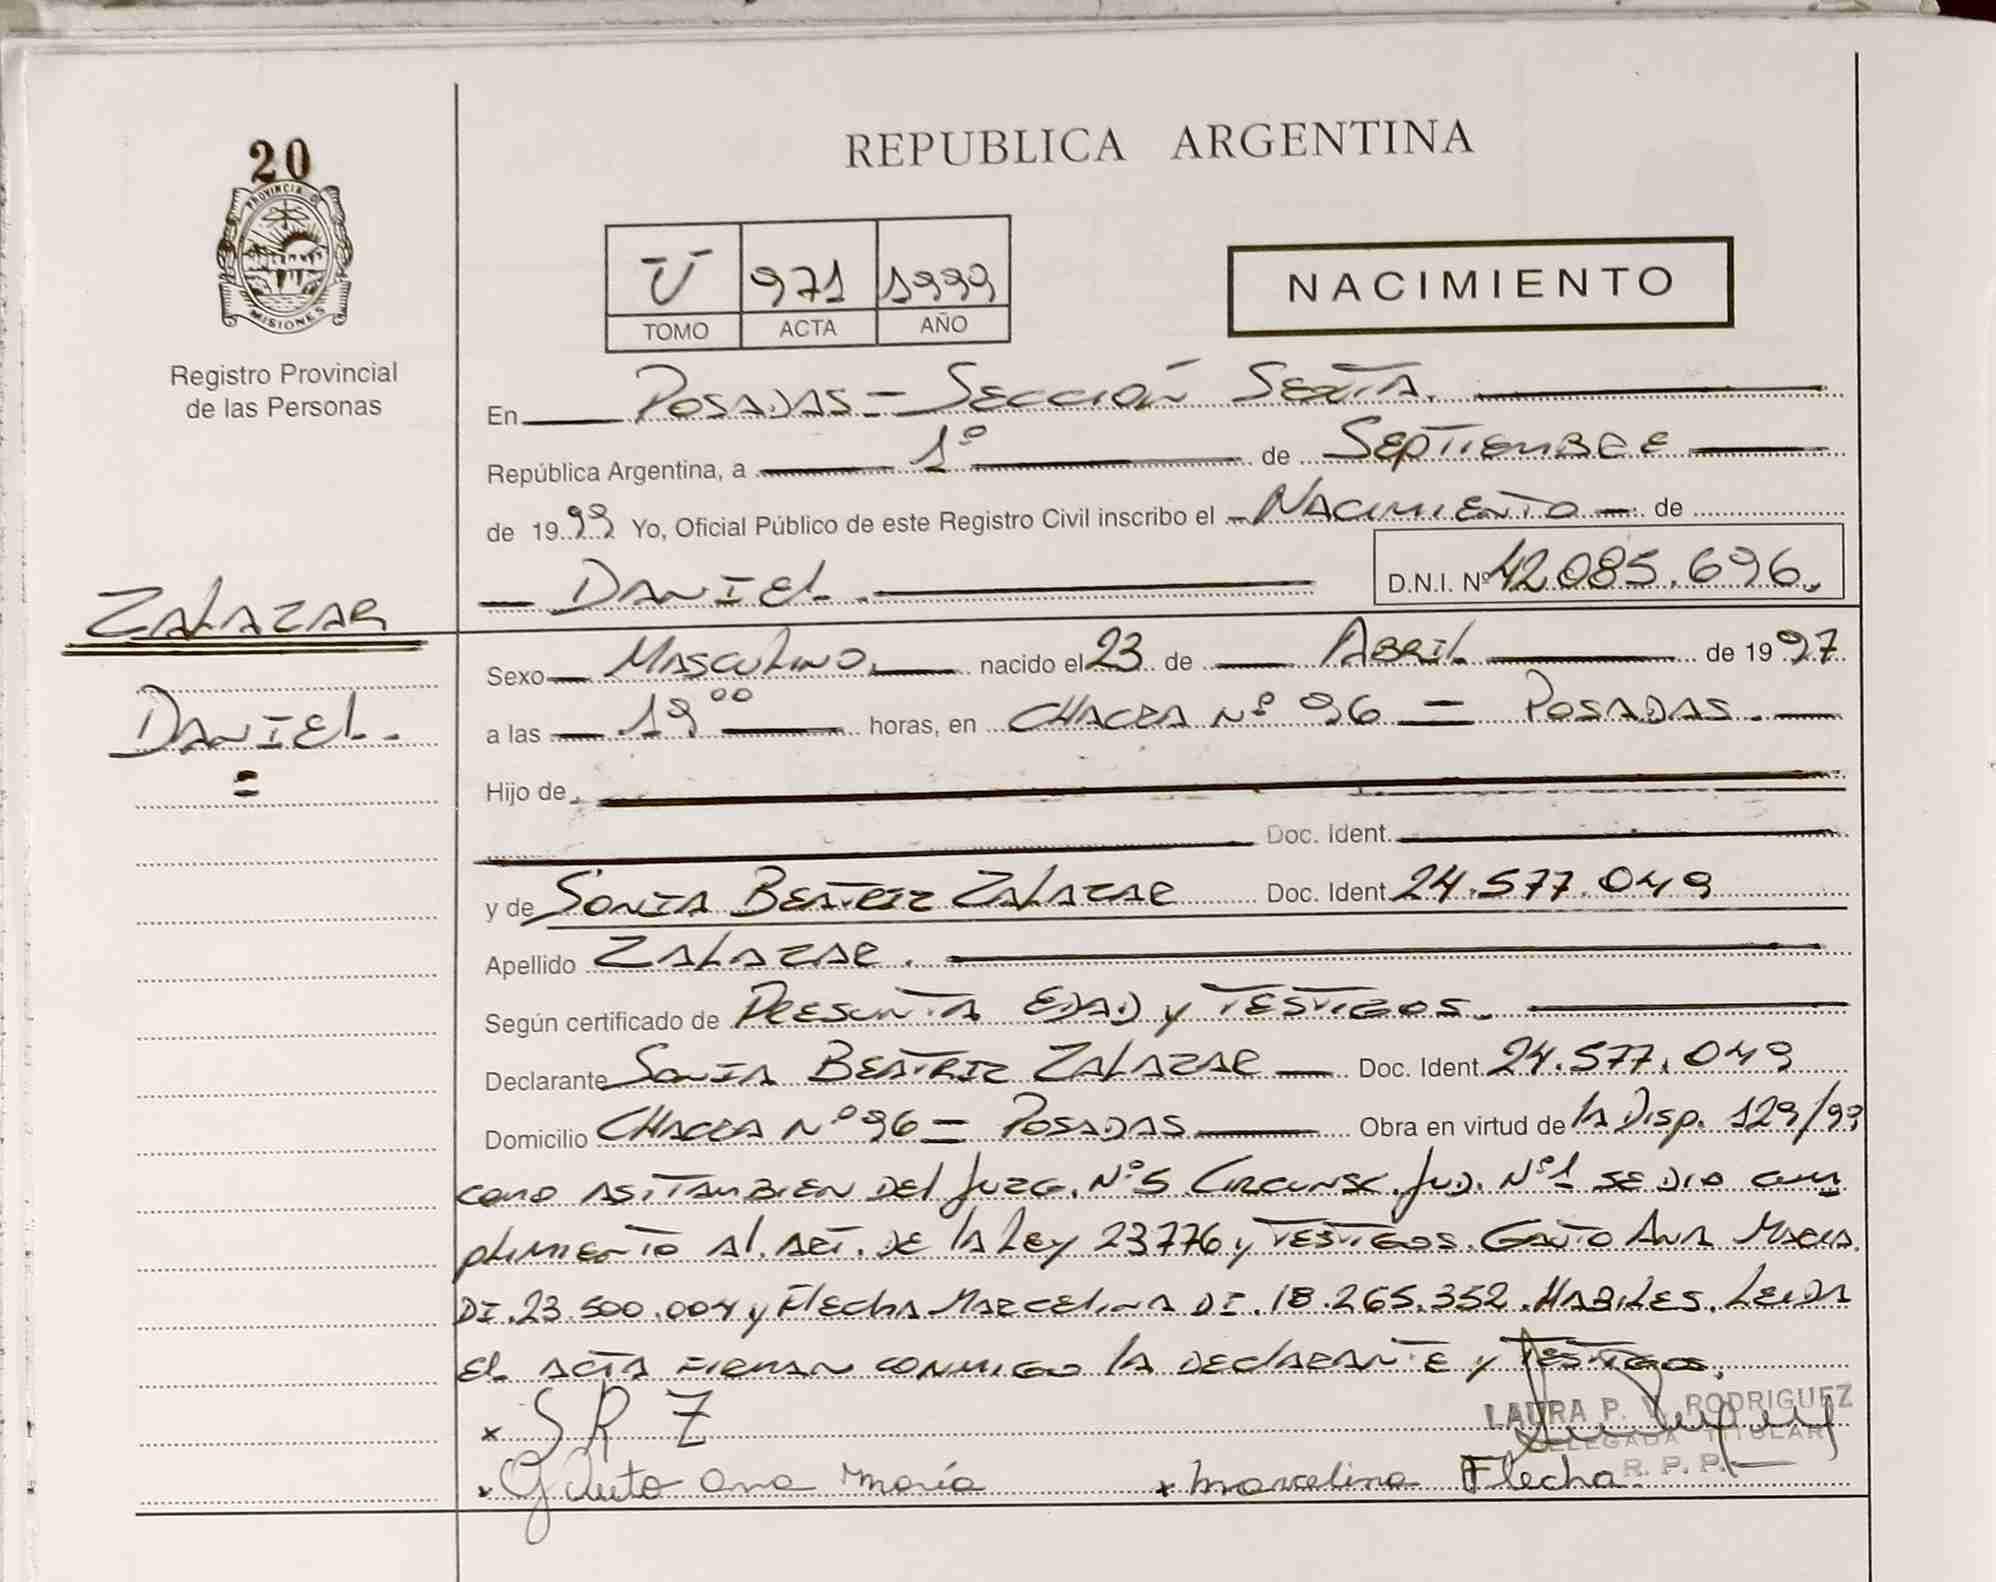 20
PROVINCIA D
MISIONES
Registro Provincial
de las Personas
ZALAZAR
DANIEL.
=
REPUBLICA ARGENTINA
Ū 971 1999
TOMO ACTA AÑO
NACIMIENTO
En POSADAS = SECCIÓN SEXTA.
República Argentina, a 1º de SEPTIEMBRE
de 1999 Yo, Oficial Público de este Registro Civil inscribo el NACIMIENTO de
DANIEL. D.N.I. Nº 42.085.696.
Sexo MASCULINO. nacido el 23 de ABRIL de 1997
a las 19⁰⁰ horas, en CHACRA Nº 96 = POSADAS.
Hijo de
Doc. Ident.
y de SONIA BEATRIZ ZALAZAR Doc. Ident. 24.577.049
Apellido ZALAZAR.
Según certificado de PRESUNTA EDAD y TESTIGOS.
Declarante SONIA BEATRIZ ZALAZAR Doc. Ident. 24.577.049
Domicilio CHACRA Nº 96 = POSADAS Obra en virtud de la Disp. 129/99
como ASI TAMBIEN DEL JUZG. Nº 5 CIRCUNSC. JUD. Nº 1 SE DIO CUM
PLIMIENTO AL. ART. DE la Ley 23776 y TESTIGOS. GAUTO ANA MARIA
DI. 23.500.004 y FLECHA MARCELINA DI. 18.265.352. HABILES. LEIDA
EL ACTA FIRMAN CONMIGO LA DECLARANTE y TESTIGOS.
x S R Z
LAURA P. V. RODRIGUEZ
DELEGADA TITULAR
R. P. P.
x Gauto ana maría x marcelina Flecha